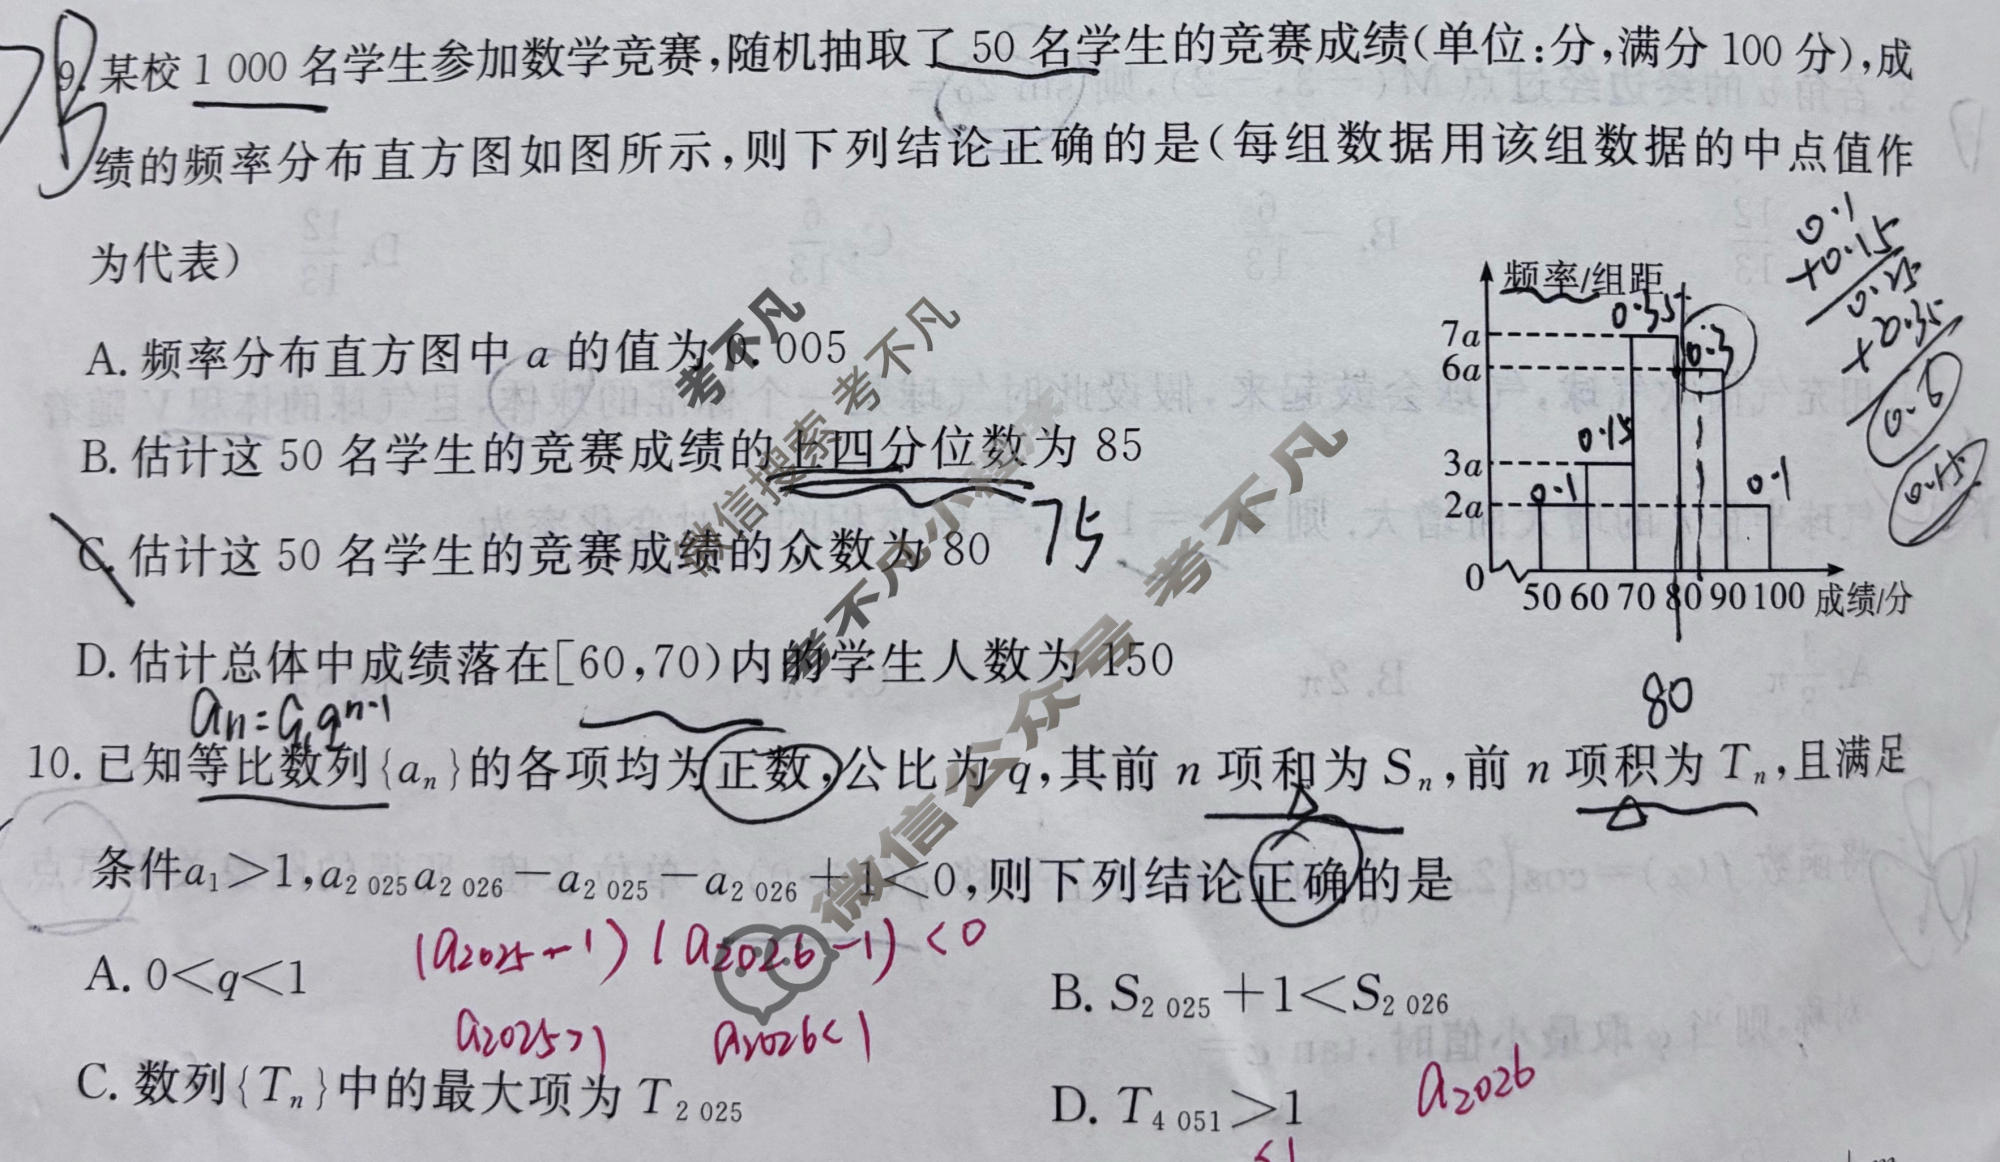 9. 某校 1 000 名学生参加数学竞赛,随机抽取了 50 名学生的竞赛成绩(单位:分,满分 100 分),成
绩的频率分布直方图如图所示,则下列结论正确的是(每组数据用该组数据的中点值作
为代表)
0.1
+0.15
0.25
+0.35
0.6
0.15
频率/组距
7a
6a
3a
2a
0
0.1
0.15
0.35
0.3
0.1
50 60 70 80 90 100 成绩/分
80
A. 频率分布直方图中 a 的值为 0.005
B. 估计这 50 名学生的竞赛成绩的上四分位数为 85
C. 估计这 50 名学生的竞赛成绩的众数为 80 75
D. 估计总体中成绩落在[60,70)内的学生人数为 150
aₙ=a₁qⁿ⁻¹
10. 已知等比数列{aₙ}的各项均为正数,公比为 q,其前 n 项和为 Sₙ,前 n 项积为 Tₙ,且满足
条件a₁>1,a₂ ₀₂₅a₂ ₀₂₆−a₂ ₀₂₅−a₂ ₀₂₆+1<0,则下列结论正确的是
(a₂₀₂₅−1)(a₂₀₂₆−1)<0
A. 0<q<1
B. S₂ ₀₂₅+1<S₂ ₀₂₆
a₂₀₂₅>1 a₂₀₂₆<1
C. 数列{Tₙ}中的最大项为 T₂ ₀₂₅
D. T₄ ₀₅₁>1
a₂₀₂₆
<1
考不凡
微信搜索 考不凡
考不凡小程序
微信公众号 考不凡